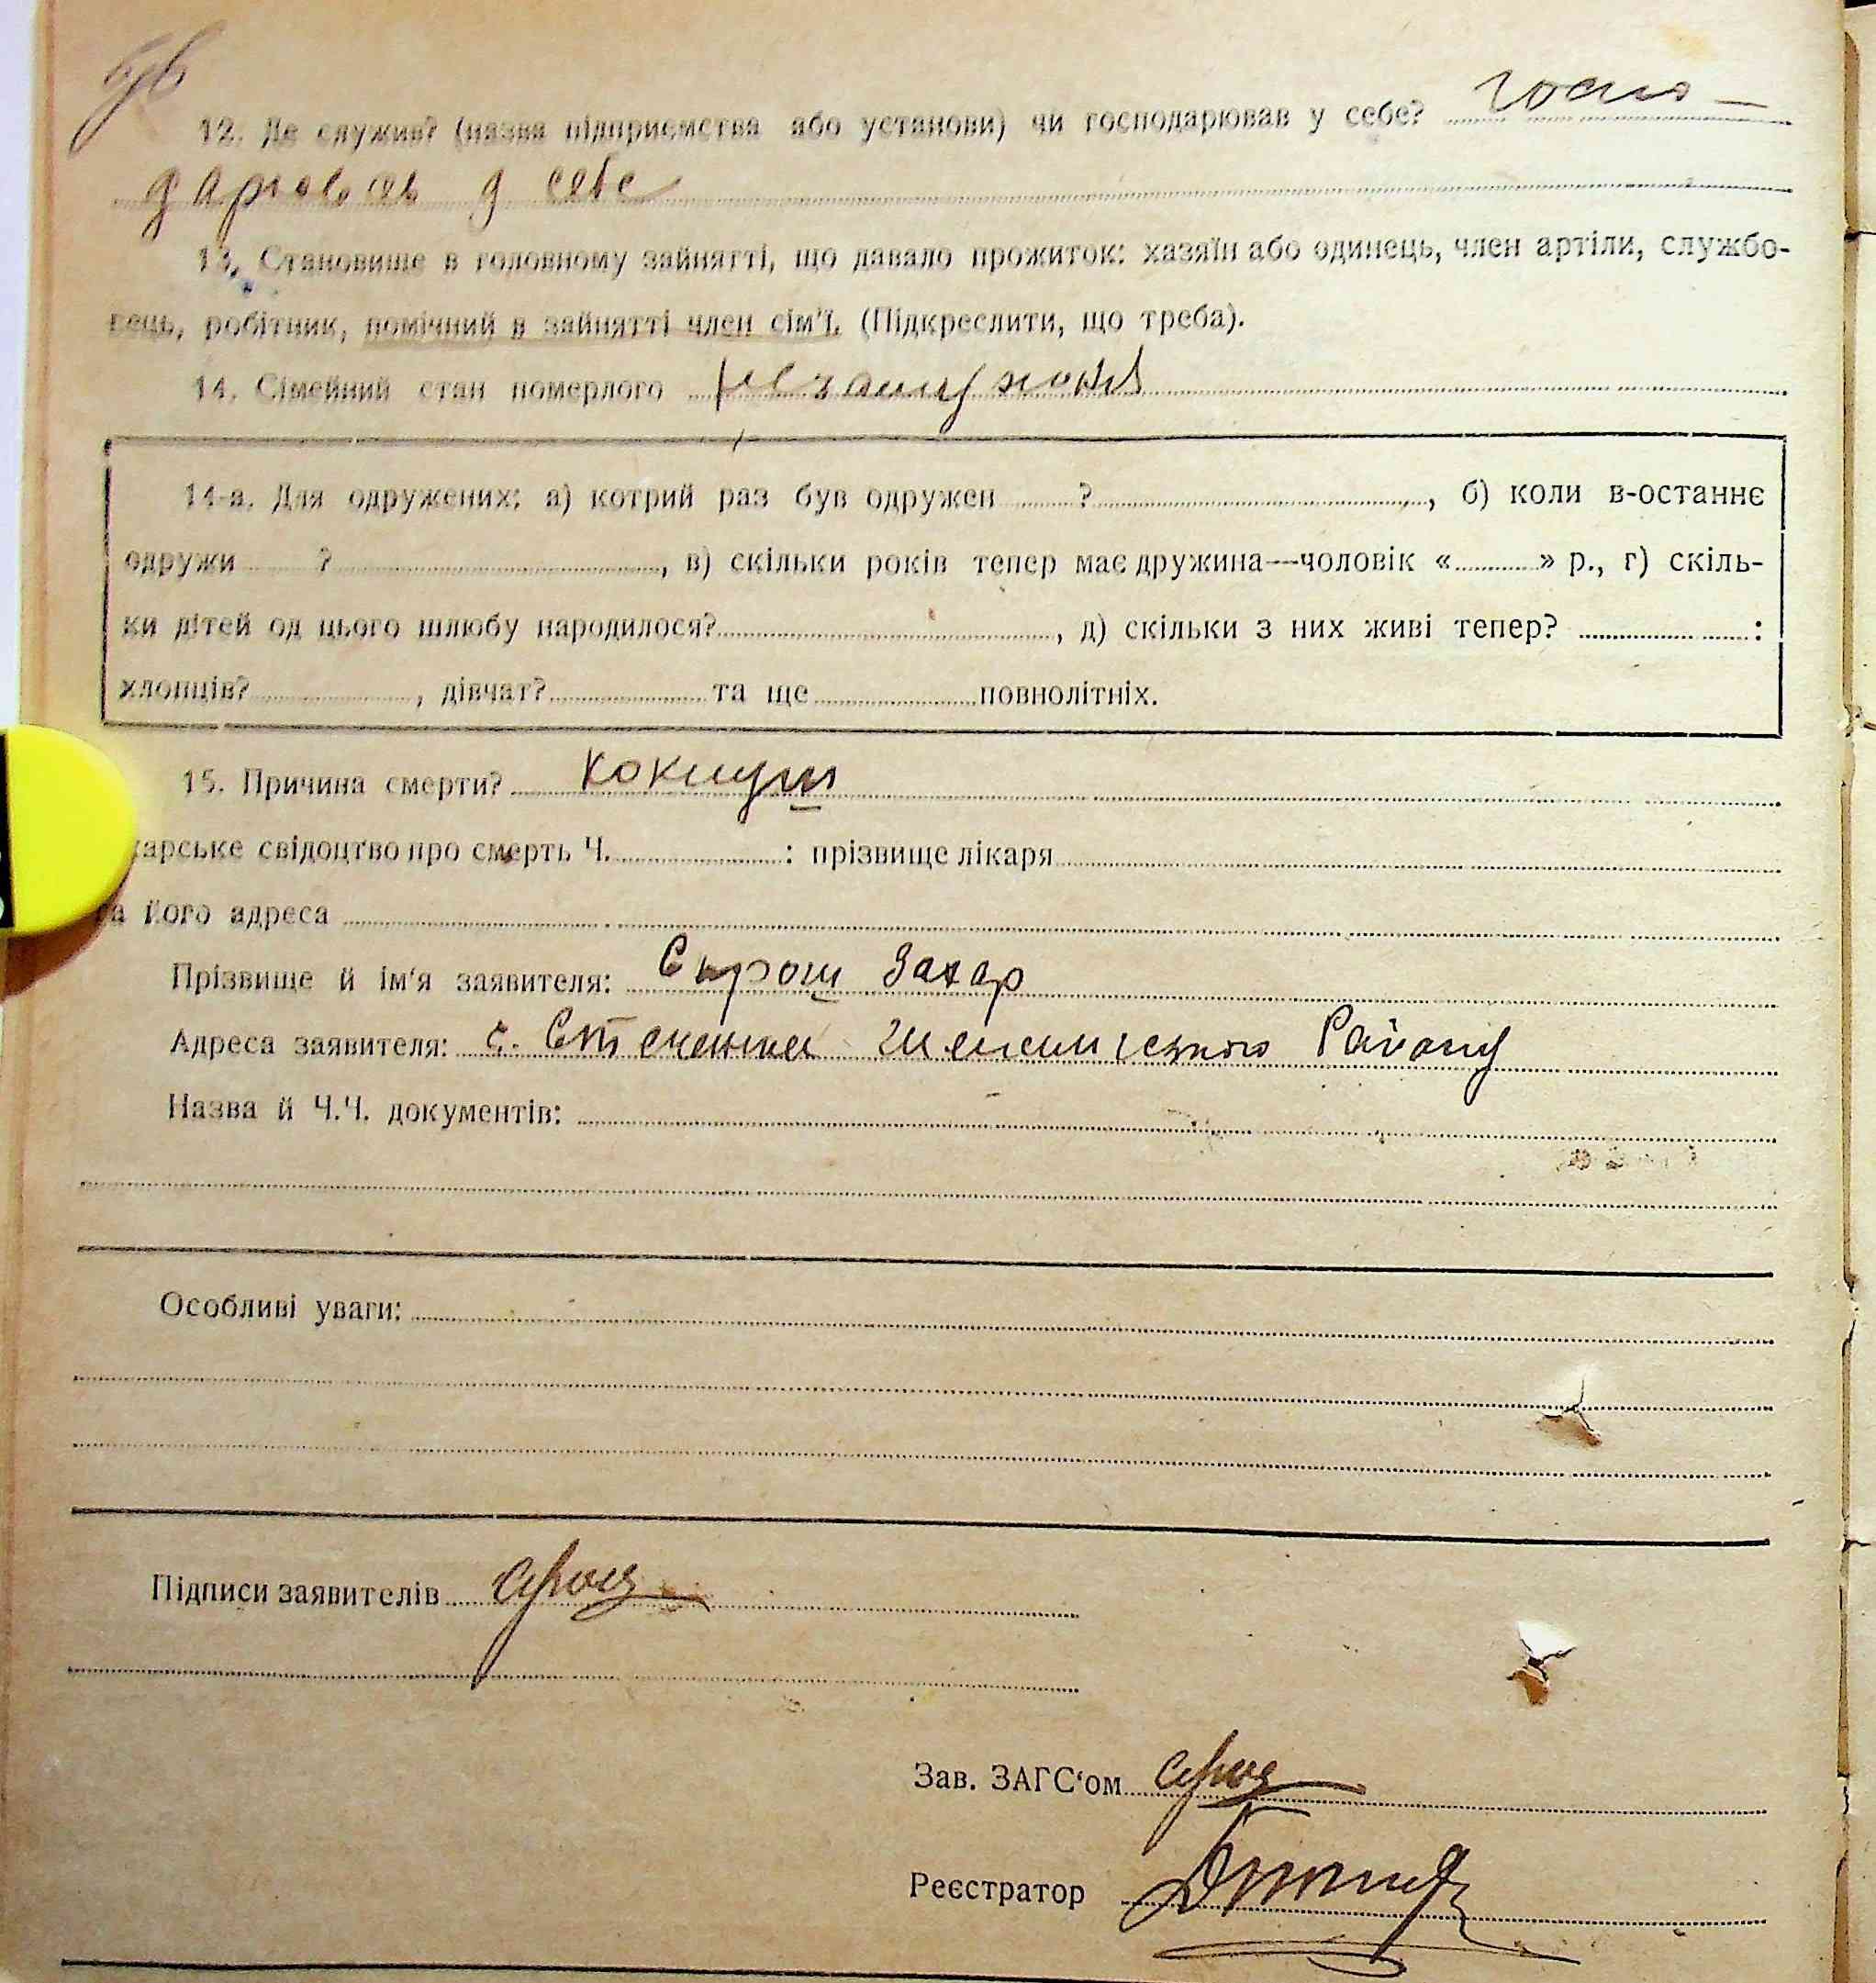 12. Де служив? (назва підприємства або установи) чи господарював у себе? госпо-
дарював у себе
13. Становище в головному зайнятті, що давало прожиток: хазяїн або одинець, член артіли, службо-
вець, робітник, помічний в зайнятті член сім'ї. (Підкреслити, що треба).
14. Сімейний стан померлого незамужня
14-а. Для одружених: а) котрий раз був одружен ? , б) коли в-останнє
одружи ? , в) скільки років тепер має дружина—чоловік « » р., г) скіль-
ки дітей од цього шлюбу народилося? , д) скільки з них живі тепер? :
хлопців? , дівчат? та ще повнолітніх.
15. Причина смерти? Коклуш
карське свідоцтво про смерть Ч. : прізвище лікаря
та його адреса
Прізвище й ім'я заявителя: Сирош Захар
Адреса заявителя: с. Району
Назва й Ч.Ч. документів:
Особливі уваги:
Підписи заявителів
Зав. ЗАГС'ом
Реєстратор